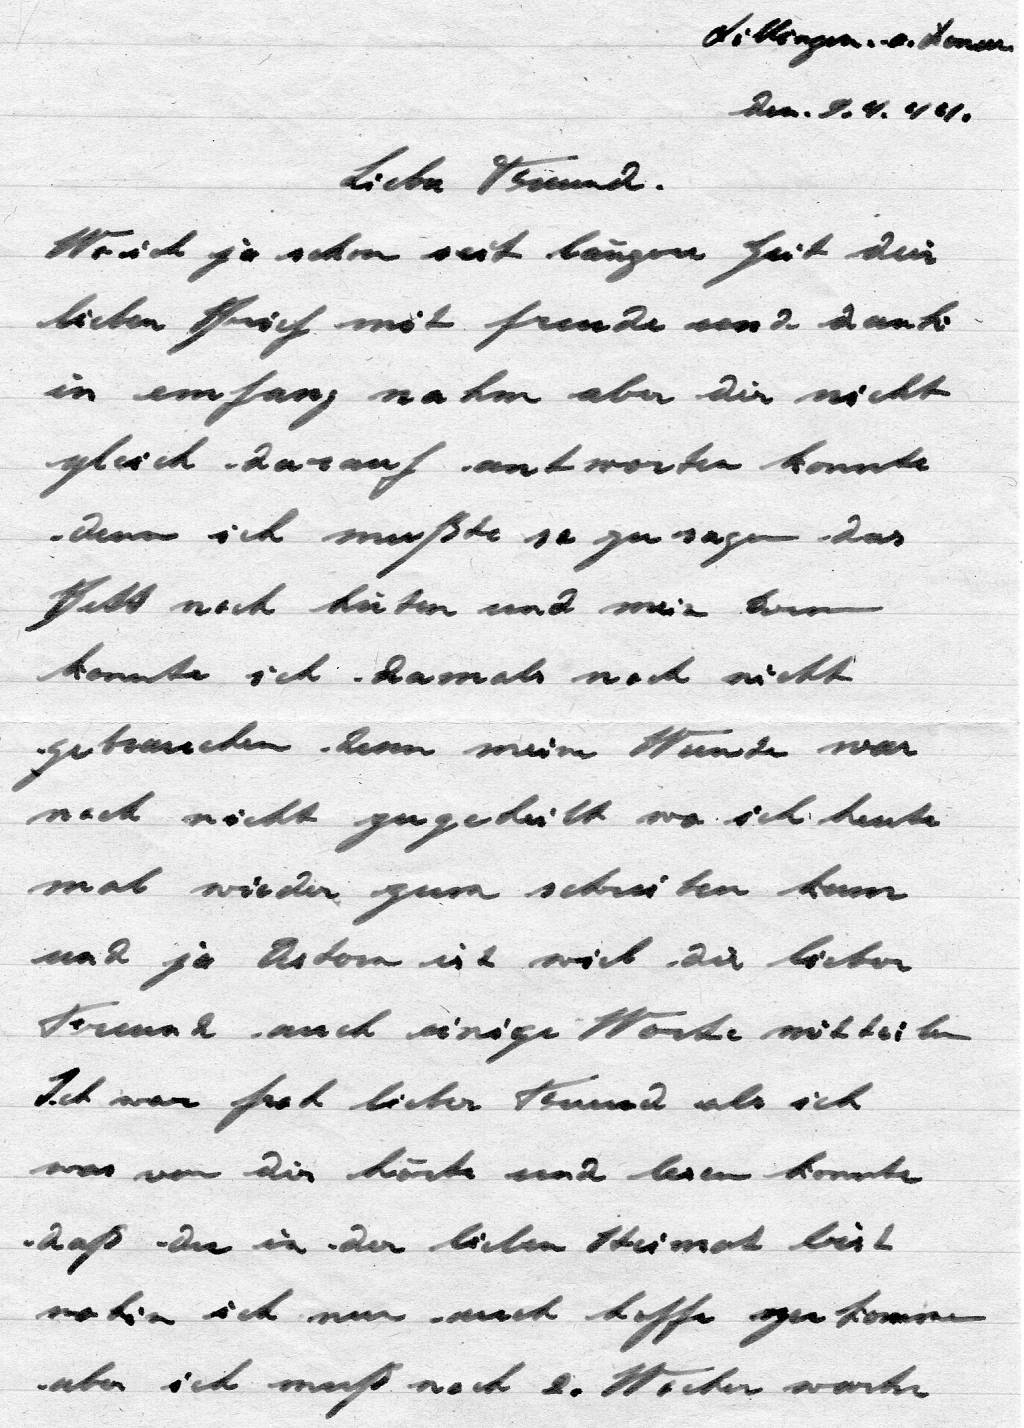 Dillingen. a. Donau.
den. 9.4.44.
Lieber Freund.
Wo ich ja schon seit längerer Zeit dein
lieben Brief mit freude und dank
in emfang nahm aber dir nicht
gleich darauf antworten konnte
denn ich mußte so zu sagen das
Bett noch hüten und mein
konnte ich damals noch nicht
gebrauchen denn meine Wunde war
noch nicht zugeheilt wo ich heute
mal wieder zum schreiben kam
und ja Ostern ist will dir lieber
Freund auch einige Worte mitteilen
Ich war froh lieber Freund als ich
was von dir hörte und lesen konnte
daß du in der lieben Heimat bist
wohin ich nun auch hoffe zu komme
aber ich muß noch 2. Wochen warte